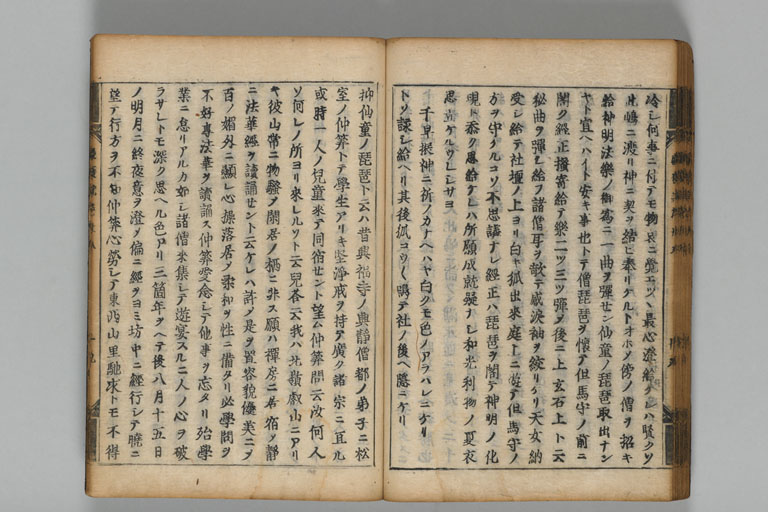 冷シ何事ニ付テモ物哀ニ覺エツヽ最心深
此嶋ニ渡リ神ニ契ヲ結ビ奉リケルトオホメ傍ノ僧ヲ招キ
給神明法樂ノ御爲ニ一曲ヲ彈セン仙童ノ琵琶取出ナン
ヤト宣ヘハイト安キ事也トテ僧琵琶ヲ懷テ但馬守ノ前ニ
閣ク經正撥寄給テ樂二ツ三ツ彈ヲ後ニ上玄石上ト云
秘曲ヲ彈シ給フ諸僧耳ヲ欹テ感涙袖ヲ絞リケリ天女納
受シ給テ社壇ノ上ヨリ白キ狐出來庭上ニ遊テ但馬守ノ
方ヲ守ケルコソ不思議ナレ經正ハ琵琶ヲ閣テ神明ノ化
現ト忝ク思給ケレハ所願成就疑ナシ和光利物ノ夏衣
思立ケルウレシサヨ
千早振神ニ祈ノカナヘハヤ白クモ色ノアラハレニケリ
トソ詠シ給ヘリ其後狐コウ〱鳴テ社ノ後ヘ隱ニケリ
抑仙童ノ琵琶ト云ハ昔興福寺ノ興靜僧都ノ弟子ニ松
室ノ仲算トテ學生アリキ堅淨戒ヲ持テ廣ク諸宗ニ亘ル
或時一人ノ兒童來テ同宿セント望ム仲算問云汝何人
ソ何レノ所ヨリ來レルソト云兒答云我ハ北嶺叡山ニアリ
キ彼山常ニ物騷ヲ閑居ノ栖ニ非ス願ハ禪房ニ居宿ノ靜
ニ法華經ヲ讀誦セント云ケレハ許ノ是ヲ置容貌優美ニヲ
百ノ媚外ニ顯レ心操落居ヲ柔和ヲ性ニ備タリ必學問ヲ
不好專法華ヲ讀誦ス仲算愛念シテ他事ヲ忘タリ殆學
業ニ怠リアルカ如シ諸僧來集シテ遊宴スルニ人ノ心ヲ破
ラサレトモ深ク思ヘル色アリ三箇年ヲヘテ後八月十五日
ノ明月ニ終夜意ヲ澄ヲ偏ニ經ヲヨミ坊中ニ經行シテ曉ニ
望テ行方ヲ不知仲算心勞シテ東西山里馳求トモ不得